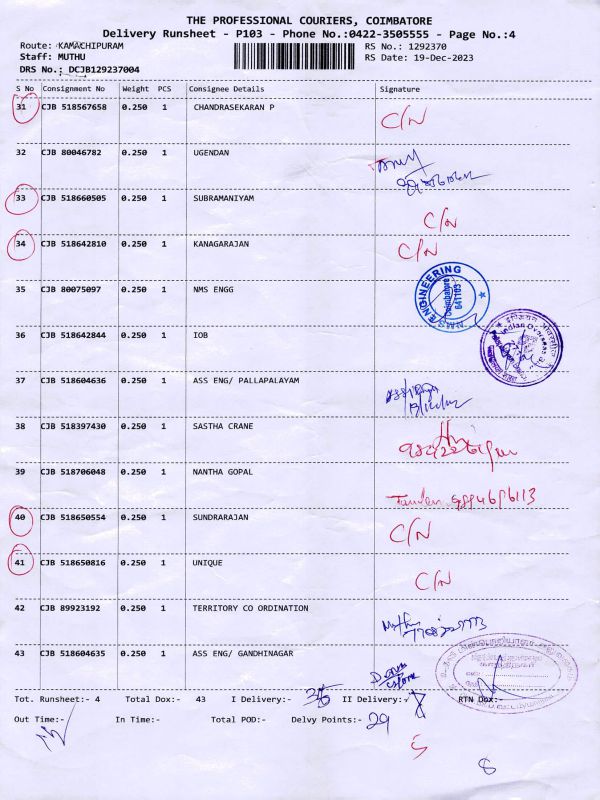 THE PROFESSIONAL COURIERS, COIMBATORE
Delivery Runsheet - P103 - Phone No.:0422-3505555 - Page No.:4
Route: KAMACHIPURAM RS No.: 1292370
Staff: MUTHU RS Date: 19-Dec-2023
DRS No.: DCJB129237004
S No Consignment No Weight PCS Consignee Details Signature
31 CJB 518567658 0.250 1 CHANDRASEKARAN P C/N
32 CJB 80046782 0.250 1 UGENDAN
33 CJB 518660505 0.250 1 SUBRAMANIYAM C/N
34 CJB 518642810 0.250 1 KANAGARAJAN C/N
35 CJB 80075097 0.250 1 NMS ENGG N.M.S. ENGINEERING Coimbatore 641103
36 CJB 518642844 0.250 1 IOB Indian Overseas
37 CJB 518604636 0.250 1 ASS ENG/ PALLAPALAYAM
38 CJB 518397430 0.250 1 SASTHA CRANE
39 CJB 518706048 0.250 1 NANTHA GOPAL
40 CJB 518650554 0.250 1 SUNDRARAJAN C/N
41 CJB 518650816 0.250 1 UNIQUE C/N
42 CJB 89923192 0.250 1 TERRITORY CO ORDINATION
43 CJB 518604635 0.250 1 ASS ENG/ GANDHINAGAR
Tot. Runsheet:- 4 Total Dox:- 43 I Delivery:- II Delivery:- RTN Dox:-
Out Time:- In Time:- Total POD:- Delvy Points:- 29
5
8